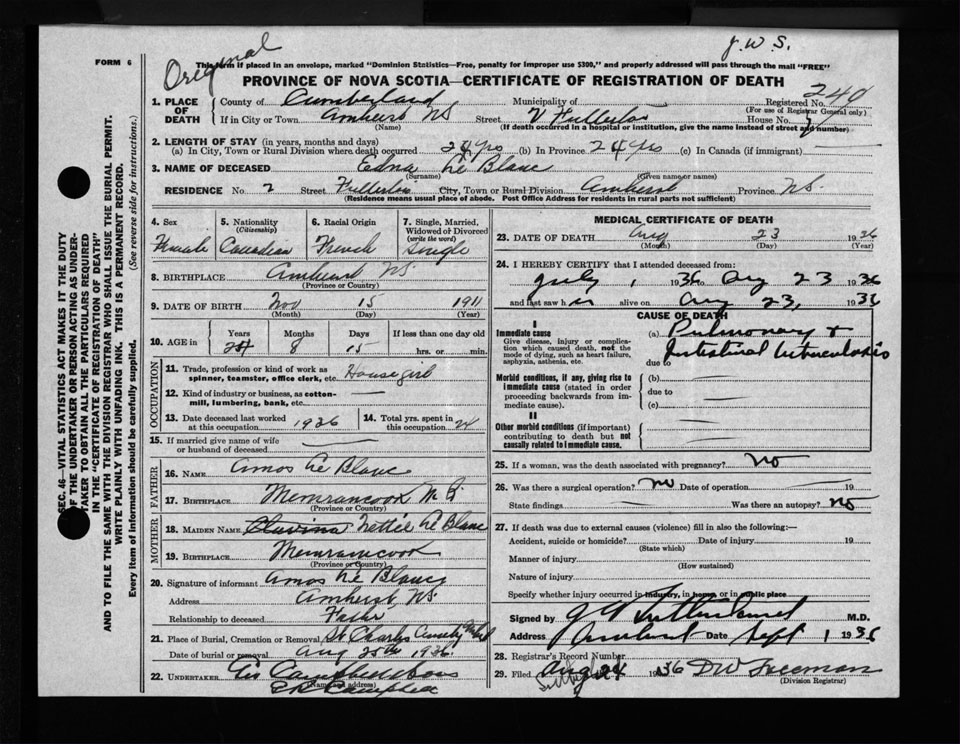 J.W.S.
FORM 6
Original
This form if placed in an envelope, marked "Dominion Statistics—Free, penalty for improper use $300," and properly addressed will pass through the mail "FREE"
PROVINCE OF NOVA SCOTIA—CERTIFICATE OF REGISTRATION OF DEATH
1. PLACE OF DEATH County of Cumberland Municipality of Registered No. 240
(For use of Registrar General only)
If in City or Town Amherst NS Street Fullerton House No.
(Name) (If death occurred in a hospital or institution, give the name instead of street and number)
2. LENGTH OF STAY (in years, months and days)
(a) In City, Town or Rural Division where death occurred 24 yrs (b) In Province 24 yrs (c) In Canada (if immigrant)
3. NAME OF DECEASED Edna Le Blanc
(Surname) (Given name or names)
RESIDENCE No. 2 Street Fullerton City, Town or Rural Division Amherst Province NS.
(Residence means usual place of abode. Post Office Address for residents in rural parts not sufficient)
4. Sex 5. Nationality (Citizenship) 6. Racial Origin 7. Single, Married, Widowed or Divorced (write the word)
Female Canadian French Single
8. BIRTHPLACE Amherst NS.
(Province or Country)
9. DATE OF BIRTH Nov 15 1911
(Month) (Day) (Year)
10. AGE in Years Months Days If less than one day
24 8 15 hrs. or min.
OCCUPATION
11. Trade, profession or kind of work as spinner, teamster, office clerk, etc. House girl
12. Kind of industry or business, as cotton-mill, lumbering, bank, etc.
13. Date deceased last worked at this occupation 1936 14. Total yrs. spent in this occupation 24
15. If married give name of wife or husband of deceased
FATHER
16. NAME Amos Le Blanc
17. BIRTHPLACE Memramcook N B
(Province or Country)
MOTHER
18. MAIDEN NAME Nettie Le Blanc
19. BIRTHPLACE Memramcook
(Province or Country)
20. Signature of informant Amos Le Blanc
Address Amherst, NS.
Relationship to deceased Father
21. Place of Burial, Cremation or Removal St Charles
Date of burial or removal Aug 25th 1936
22. UNDERTAKER
(Name and address)
MEDICAL CERTIFICATE OF DEATH
23. DATE OF DEATH Aug 23 1936
(Month) (Day) (Year)
24. I HEREBY CERTIFY that I attended deceased from:
July 1 1936 to Aug 23 1936
and last saw her alive on Aug 23, 1936
CAUSE OF DEATH
I
Immediate cause
Give disease, injury or complication which caused death, not the mode of dying, such as heart failure, asphyxia, asthenia, etc.
(a) Pulmonary +
Intestinal tuberculosis
due to
Morbid conditions, if any, giving rise to immediate cause (stated in order proceeding backwards from immediate cause).
(b)
due to
(c)
II
Other morbid conditions (if important) contributing to death but not causally related to immediate cause.
25. If a woman, was the death associated with pregnancy? No
26. Was there a surgical operation? No Date of operation 19
State findings Was there an autopsy? No
27. If death was due to external causes (violence) fill in also the following:—
Accident, suicide or homicide? Date of injury 19
(State which)
Manner of injury
(How sustained)
Nature of injury
Specify whether injury occurred in industry, in home, or in public place
Signed by M.D.
Address Amherst Date Sept 1 1936
28. Registrar's Record Number
29. Filed Aug 24 1936 DW Freeman
(Division Registrar)
SEC. 46—VITAL STATISTICS ACT MAKES IT THE DUTY
OF THE UNDERTAKER OR PERSON ACTING AS UNDER-
TAKER TO OBTAIN ALL THE PARTICULARS REQUIRED
IN THE "CERTIFICATE OF REGISTRATION OF DEATH"
AND TO FILE THE SAME WITH THE DIVISION REGISTRAR WHO SHALL ISSUE THE BURIAL PERMIT.
WRITE PLAINLY WITH UNFADING INK. THIS IS A PERMANENT RECORD.
Every item of information should be carefully supplied. (See reverse side for instructions.)